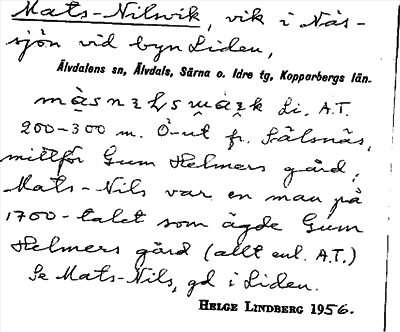 Mats-Nilsvik, vik i Näs-
sjön vid byn Liden,
Älvdalens sn, Älvdals, Särna o. Idre tg, Kopparbergs län.
Li. A.T.
200-300 m. Ö-ut fr. Sälsnäs,
mittför Gum Helmers gård,
Mats-Nils var en man på
1700-talet som ägde Gum
Helmers gård (allt enl. A.T.)
Se Mats-Nils, gd i Liden.
HELGE LINDBERG 1956.